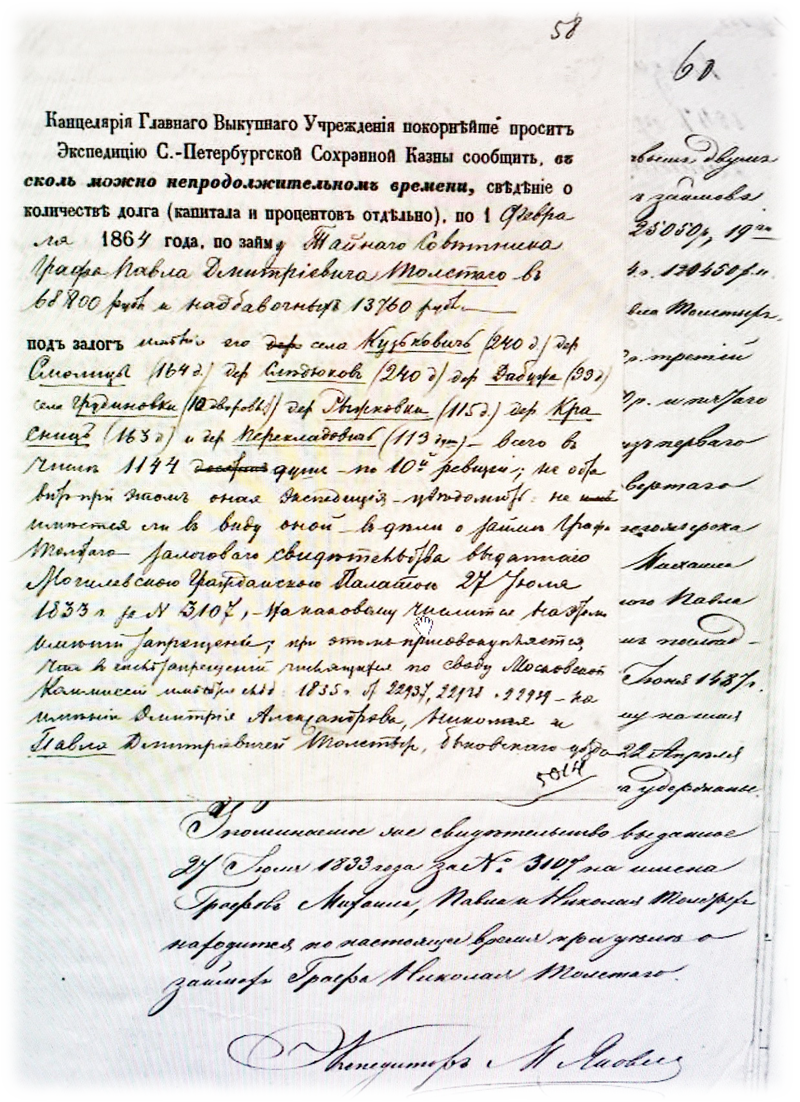 58
60
Канцелярія Главнаго Выкупнаго Учрежденія покорнѣйше проситъ
Экспедицію С.-Петербургской Сохранной Казны сообщить, въ
сколь можно непродолжительномъ времени, свѣдѣніе о
количествѣ долга (капитала и процентовъ отдѣльно), по 1 Февра
ля 1864 года, по займу Тайнаго Совѣтника
Графа Павла Дмитріевича Толстаго въ
68800 руб. и надбавочныхъ 13760 руб.
подъ залогъ имѣнія его села Кузьковичь (240 д) дер
Смолицы (164 д.) дер Слѣдюковъ (240 д) дер Дабужа (99 д)
села Грудиновки (10 дворовых) дер Рыжковки (115 д.) дер Кра
сницъ (163 д) и дер Перекладовичь (113 душ) – всего въ
числѣ 1144 душъ – по 10й ревизіи; не
при этомъ оная Экспедиція – не
имѣется ли въ виду оной – въ дѣлѣ о займѣ Графа
Толстаго – залоговаго свидѣтельства выданнаго
Могилевскою Гражданскою Палатою 27 Іюля
1833 г за N 3107, – по каковому числится на этомъ
имѣніи запрещеніе; при этомъ присовокупляется,
что въ запрещеній по своду Московской
Коммисіи 1835 г 22937, 22938 и 22939 – на
имѣніи Дмитрія Александрова, Николая и
Павла Дмитріевичей Толстыхъ, быховскаго уѣзда
5014
двумъ
займовъ
25050 р, 19го
120450 р.
Толстыхъ,
третій
перваго
срока
Михаила
Павла
Іюня 1487 г.
22 Апрѣля
Упоминаемое же свидѣтельство выданное
27 Іюля 1833 года за № 3107 на имена
Графовъ Михаила, Павла и Николая Толстыхъ
находится по настоящее время при дѣлѣ о
займѣ Графа Николая Толстаго.
Экспедиторъ М Яковле